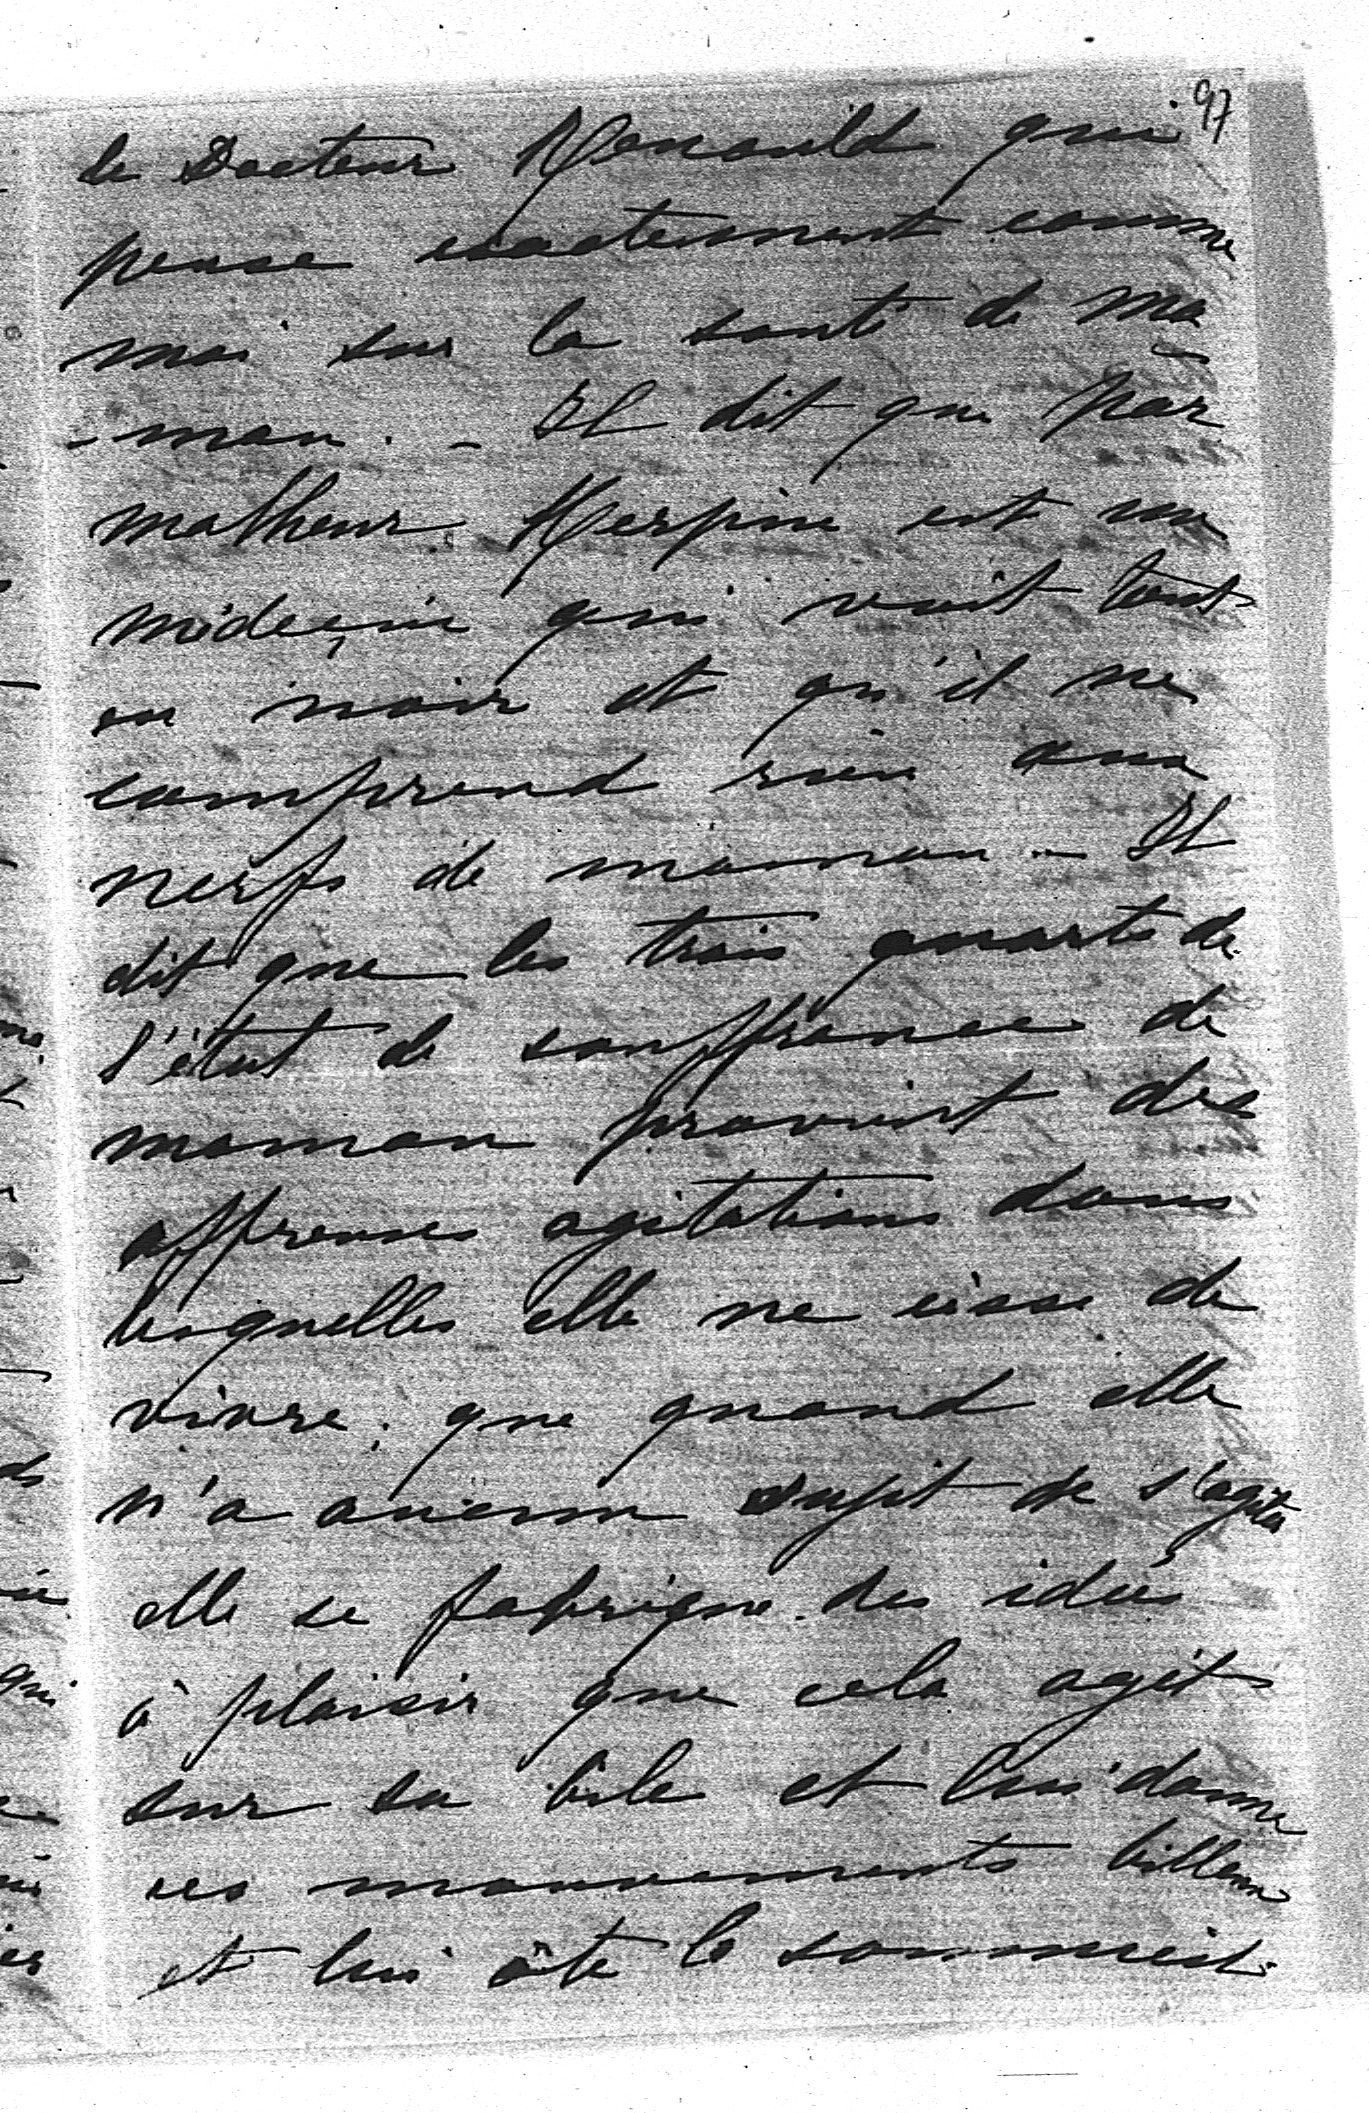 97
le Docteur Renauld qui
pense exactement comme
moi sur la santé de ma
-man. - Il dit que par
malheur Herpin est un
médecin qui voit tout
en noir et qu'il ne
comprend rien aux
nerfs de maman - Il
dit que les trois quarts de
l'état de souffrance de
maman provient des
affreuses agitations dans
lesquelles elle ne cesse de
vivre, que quand elle
n'a aucun sujet de s'agiter
elle se fabrique des idées
à plaisir que cela agit
sur sa bile et lui donne
ces mouvements billeux
et lui ôte le sommeil.